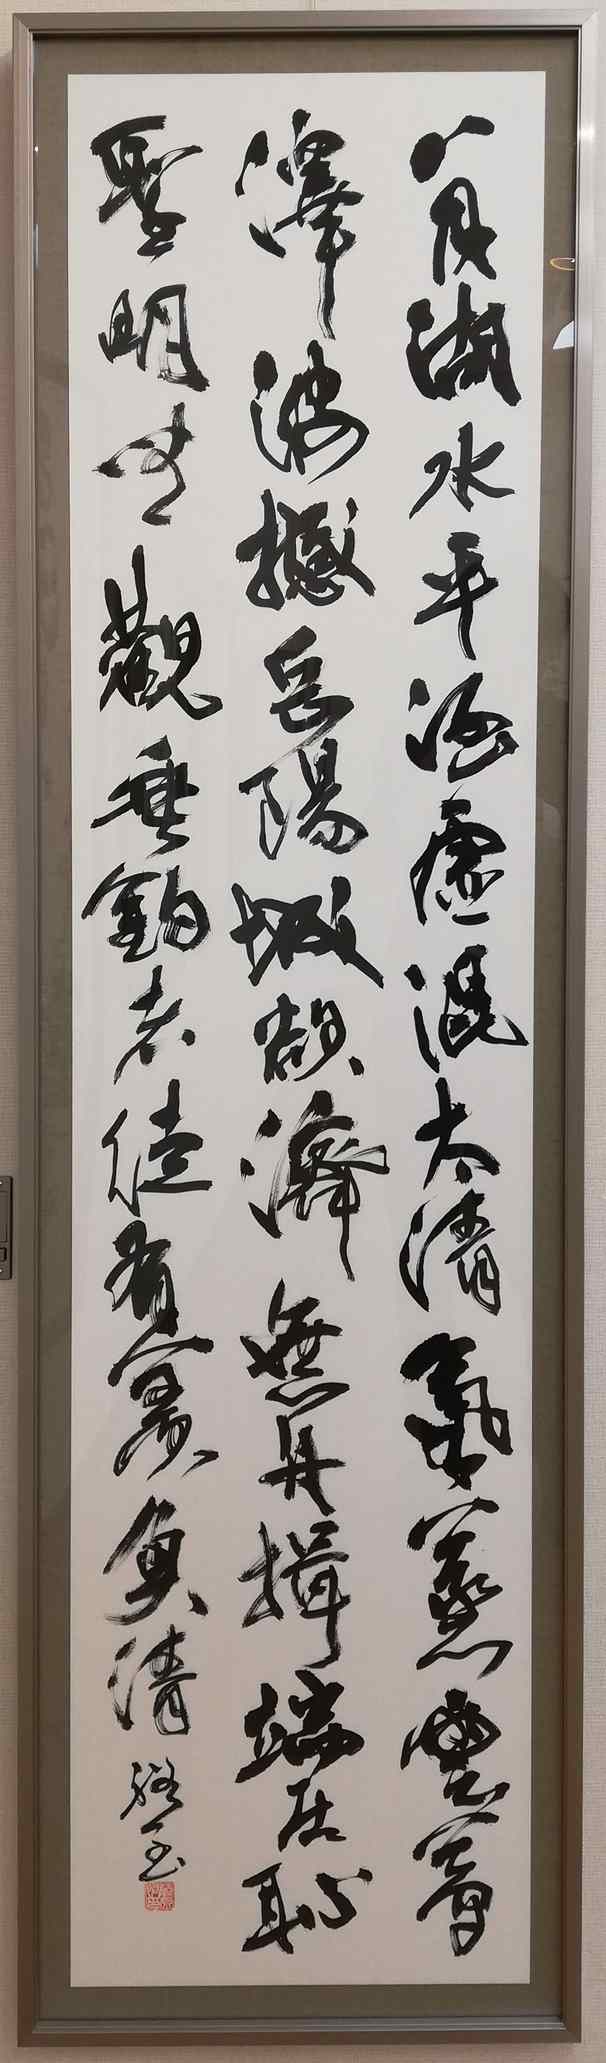 八月湖水平涵虚混太清氣蒸雲夢
澤波撼岳陽城欲濟無舟楫端居恥
聖明坐觀垂釣者徒有羨魚情